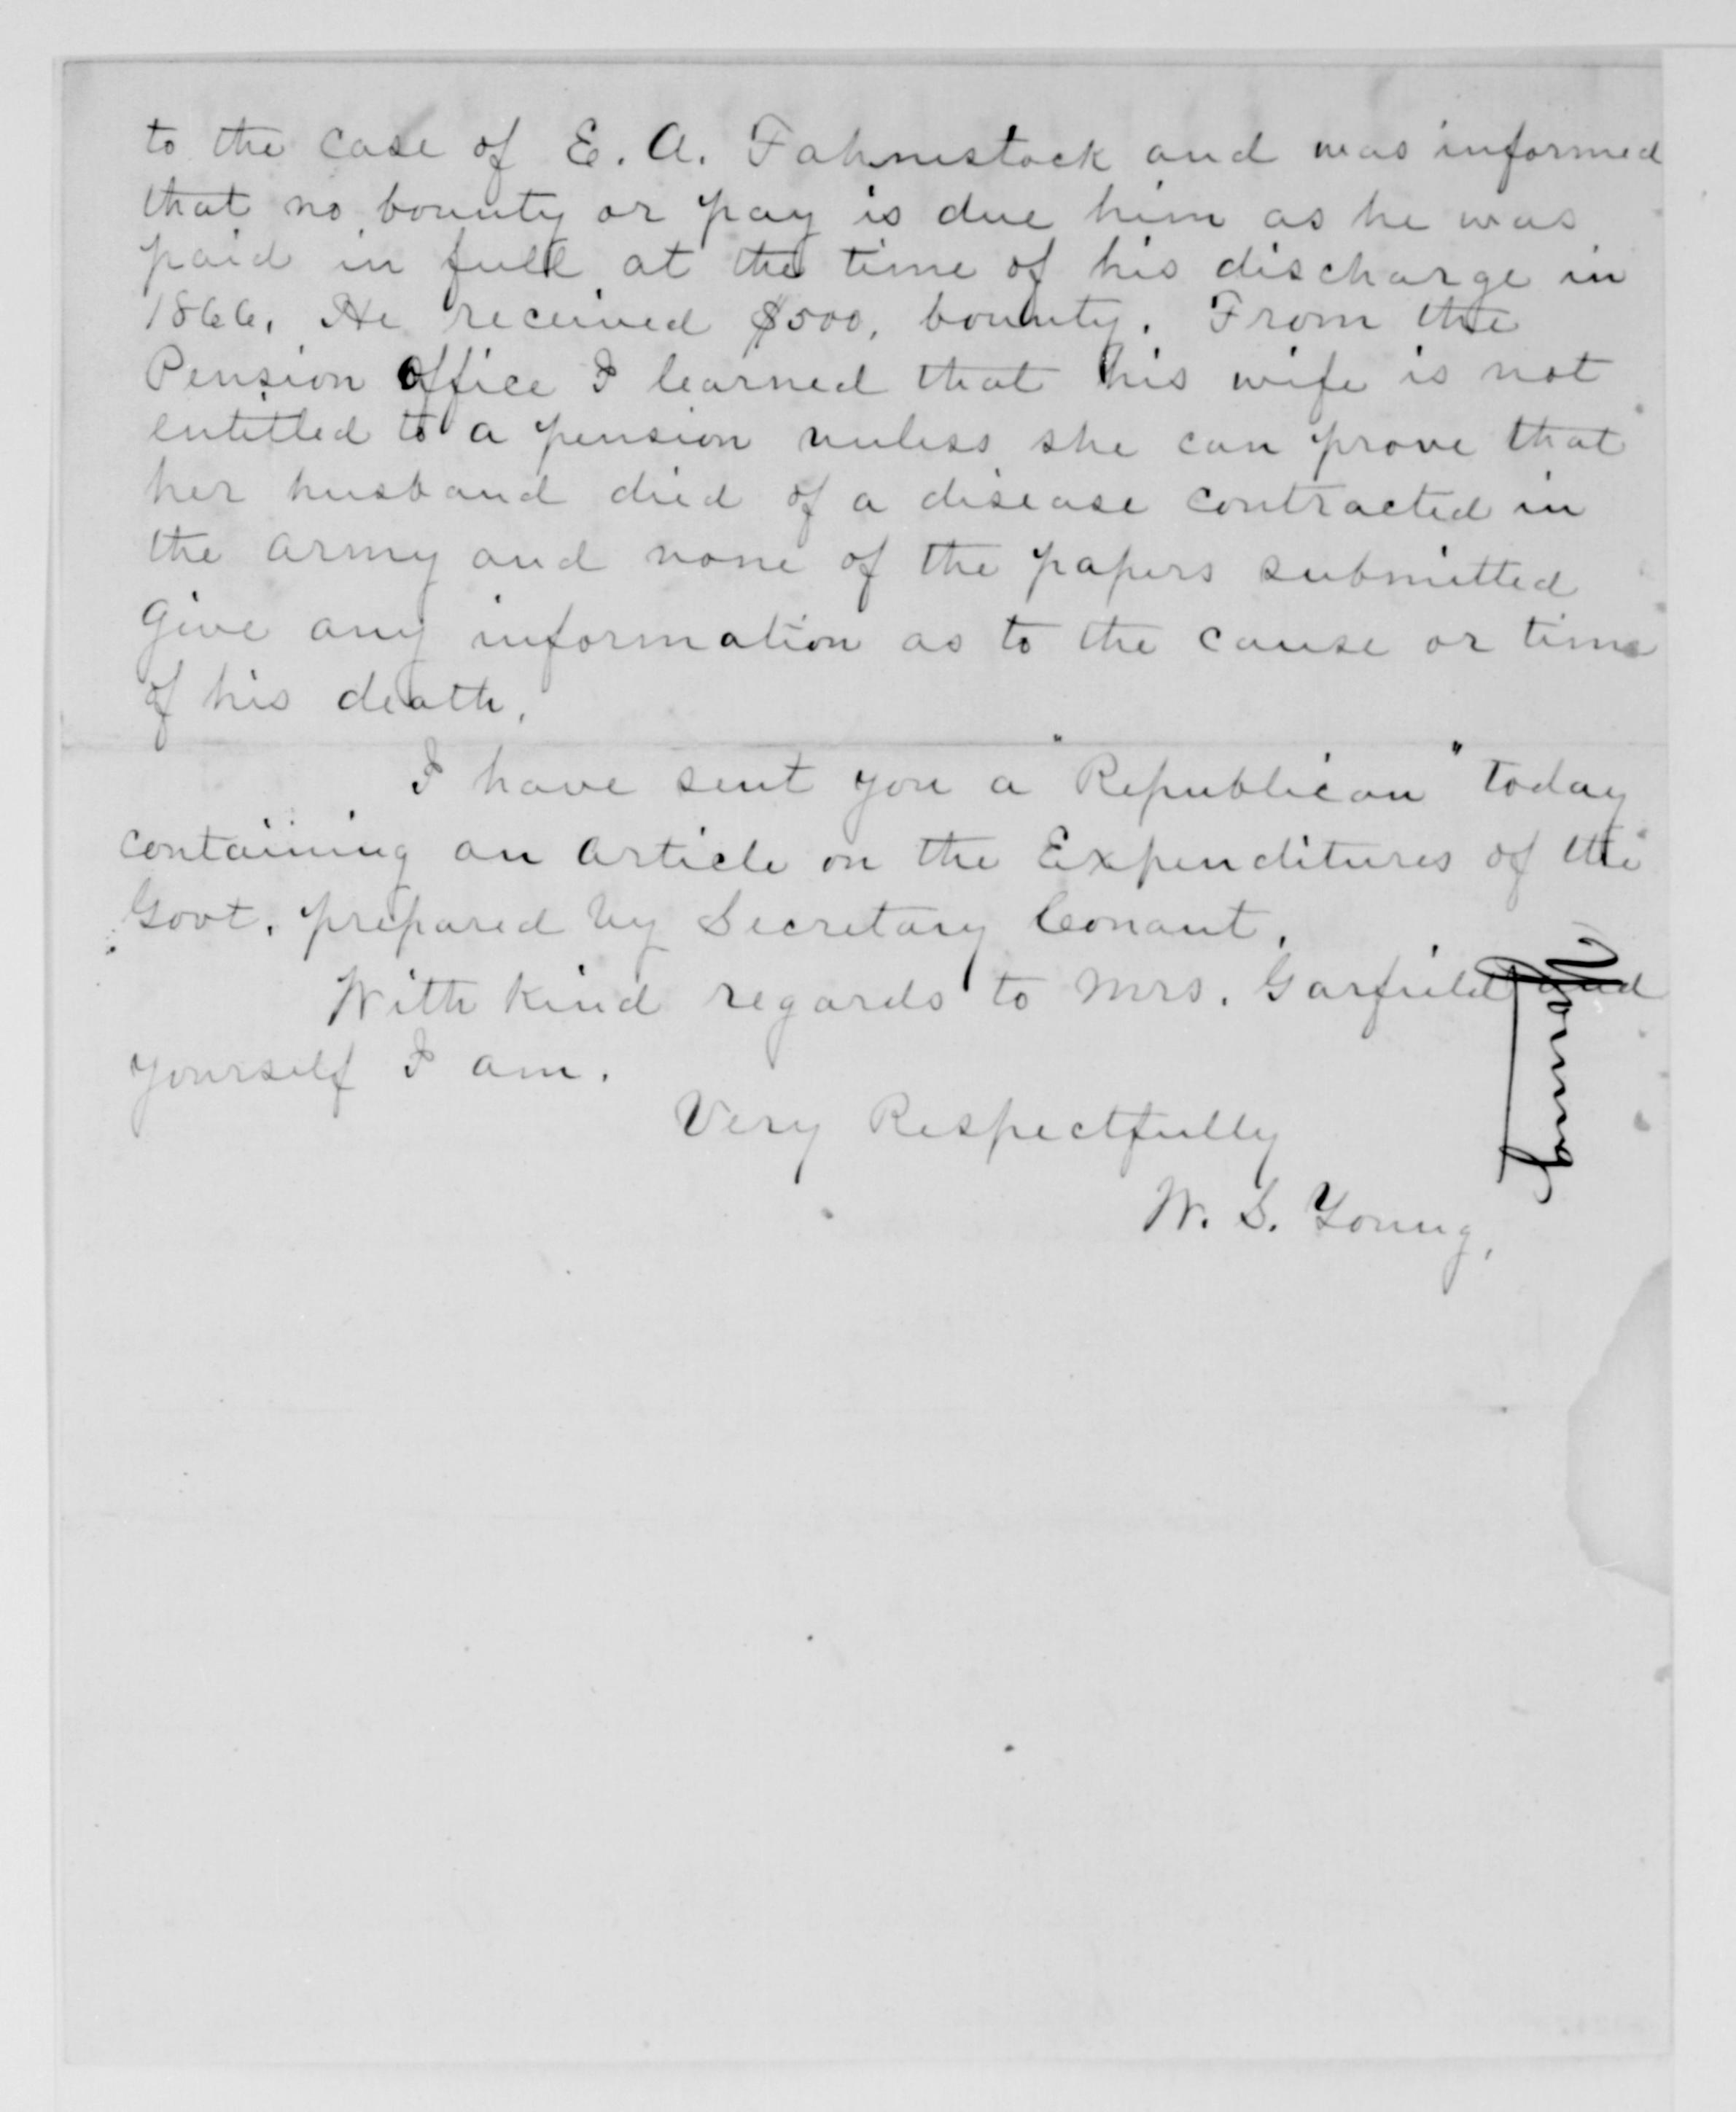 to the case of E. A. Fahnestock and was informed
that no bounty or pay is due him as he was
paid in full at the time of his discharge in
1866. He received $500, bounty. From the
Pension Office I learned that his wife is not
entitled to a pension unless she can prove that
her husband died of a disease contracted in
the army and none of the papers submitted
give any information as to the cause or time
of his death.
I have sent you a "Republican" today
containing an article on the Expenditures of the
Govt. prepared by Secretary Conant.
With kind regards to Mrs. Garfield and
yourself I am.
Very Respectfully
W. S. Young,